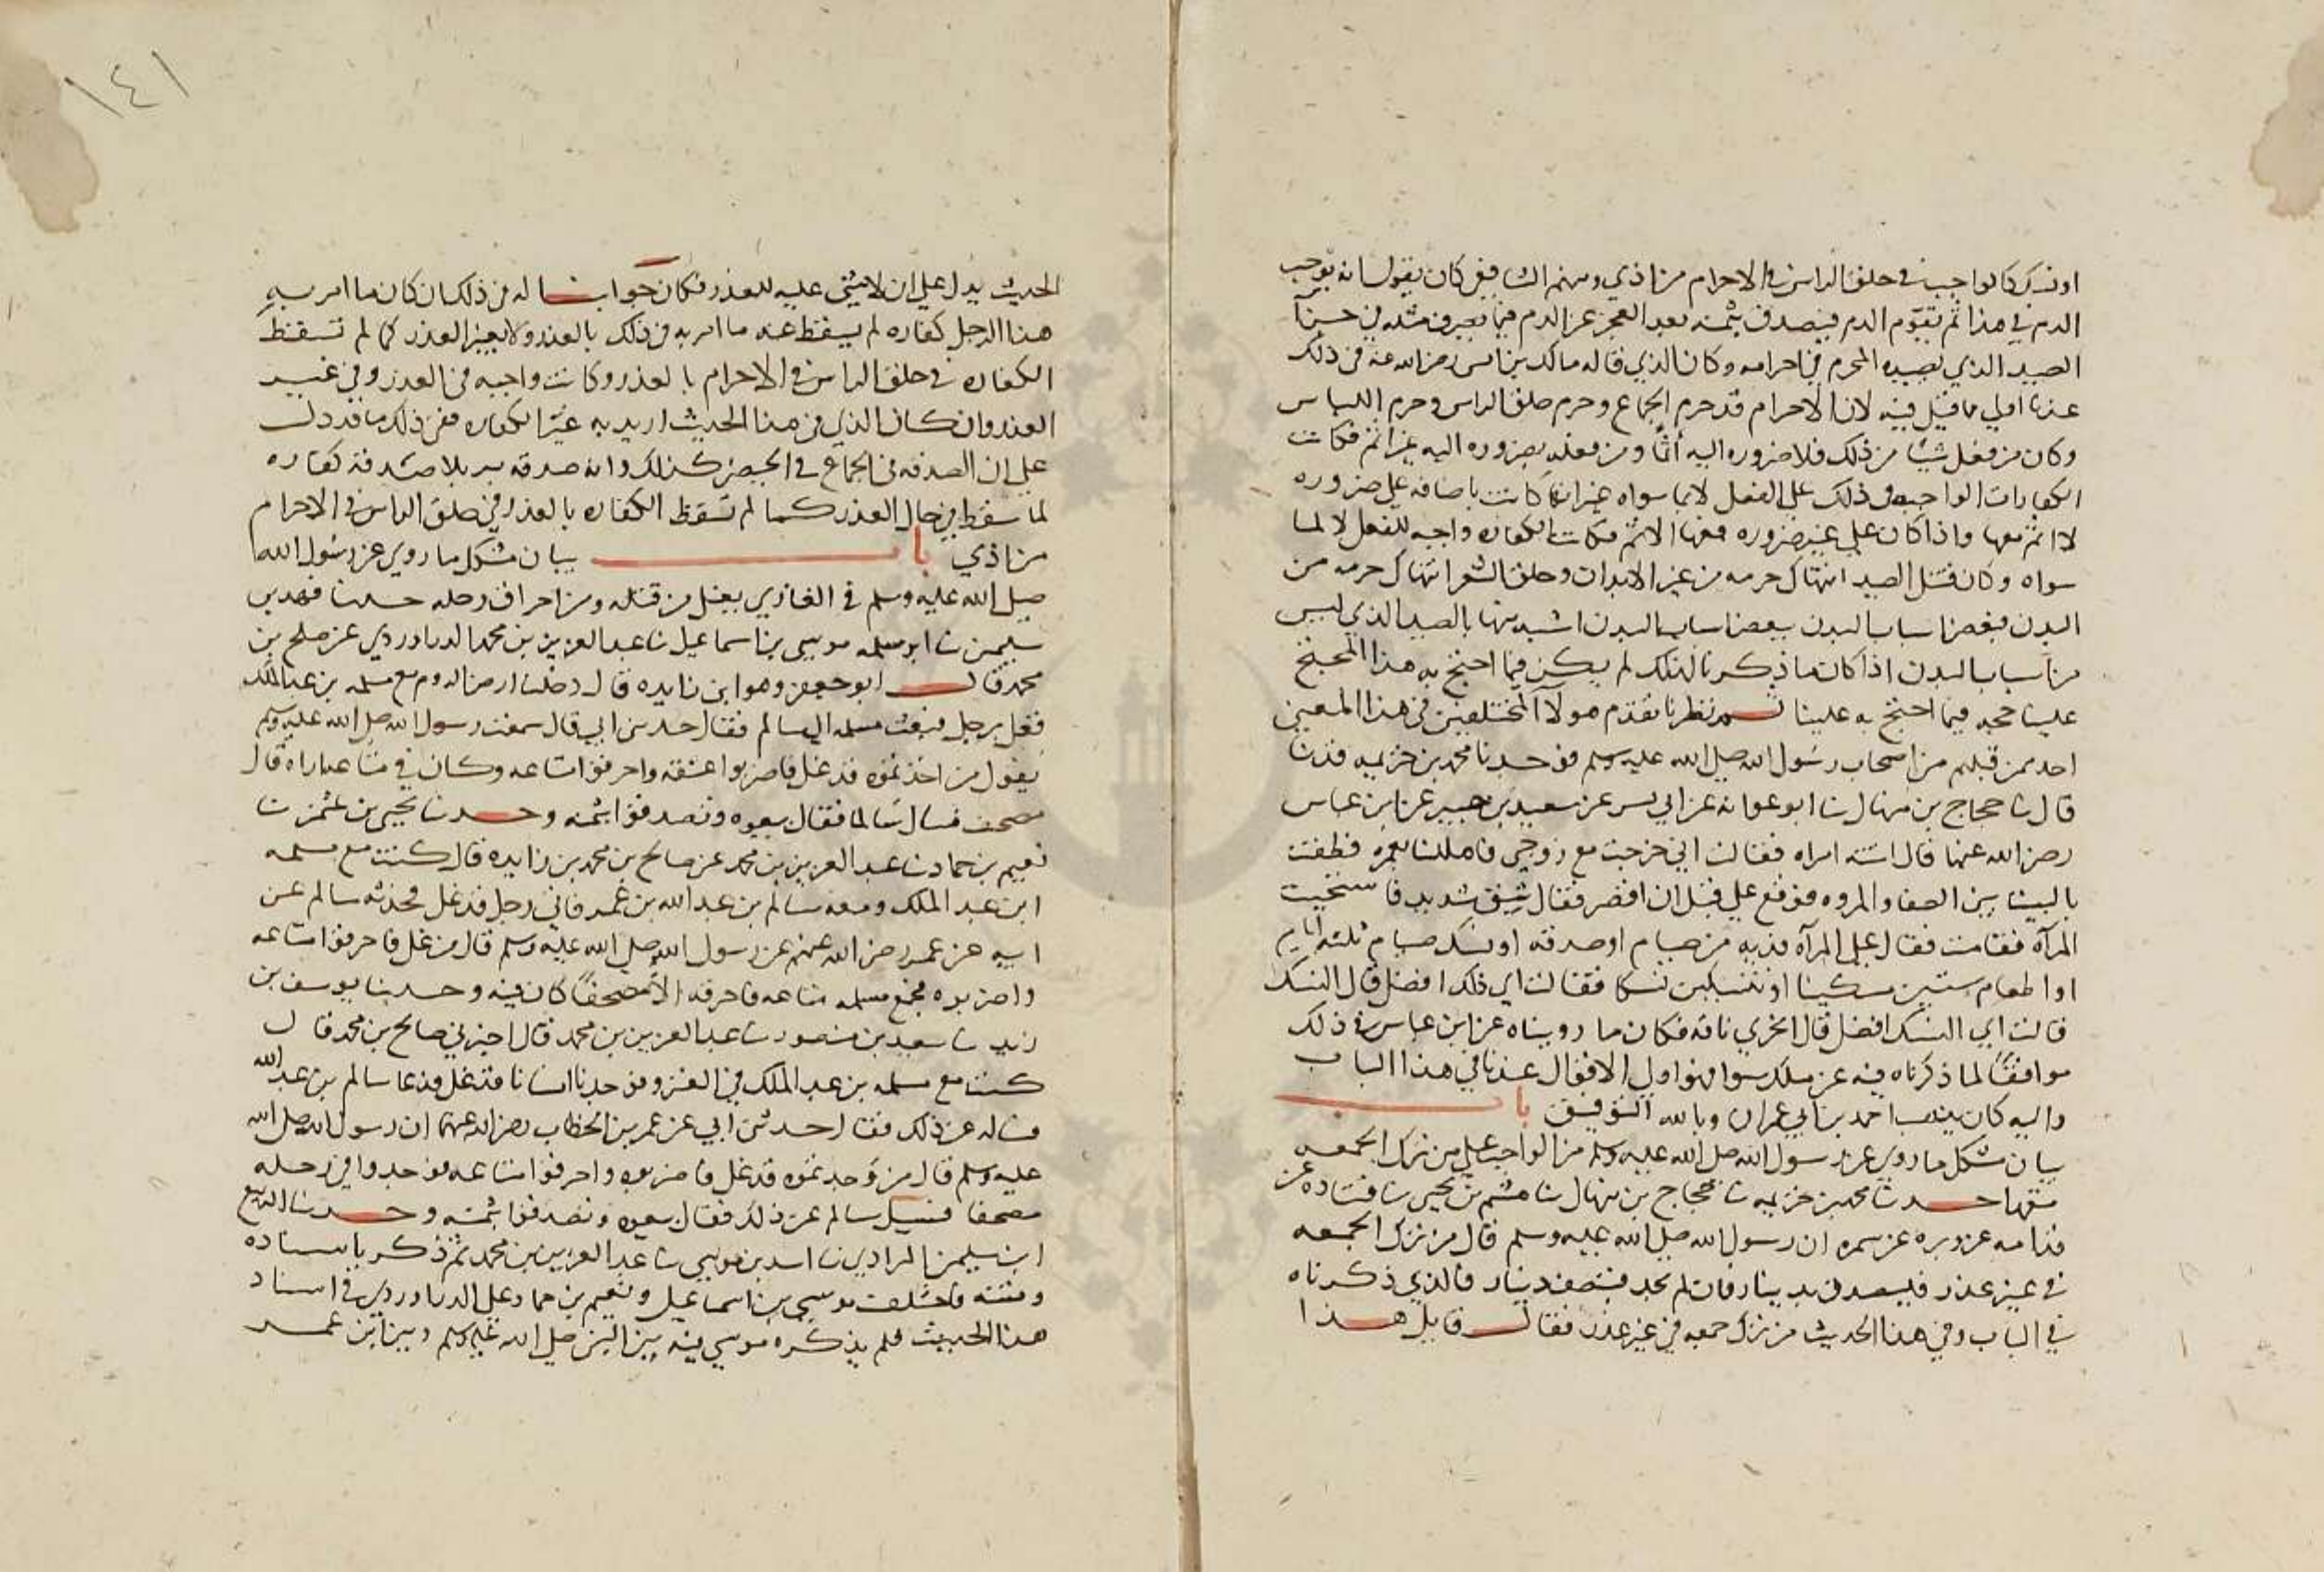 او نسك كالواجب في حلق الراس في الاحرام من اذي ومنهم الشافعي كان يقول انه يوجب
الدم في هذا ثم يقوم الدم فيتصدق بثمنه بعد العجز عن الدم فيما يصرف مثله في جزآ
الصيد الذي يصيبه المحرم في احرامه وكان الذي قاله مالك بن انس رضي الله عنه في ذلك
عندنا اولي ما قيل فيه لان الاحرام قد حرم الجماع وحرم حلق الراس وحرم اللباس
وكان من فعل شيئا من ذلك فلا ضروره اليه اثما ومن فعله بضروره اليه غير اثم فكانت
الكفارات الواجبه في ذلك على الفعل لا بما سواه غير انها كانت باصابه على ضروره
لا اثم معها واذا كان علي غير ضروره معها الاثم فكانت الكفاره واجبه للفعل لا لما
سواه وكان قتل الصيد انتهاك حرمه من غير الابدان وحلق الشعر انتهاك حرمه من
البدن فبعض اسباب البدن ببعض اسباب البدن اشبه منها بالصيد الذي ليس
من اسباب البدن اذا كان ما ذكرنا كذلك لم يكن فيما احتج به هذا المحتج
علينا حجه فيما احتج به علينا ثم نظرنا تقدم هولآ المختلفين في هذا المعني
احد ممن قبلهم من اصحاب رسول الله صلى الله عليه وسلم فوجدنا محمد بن خزيمه قد ثنا
قال ثنا حجاج بن منهال ثنا ابو عوانه عن ابي بشر عن سعيد بن جبير عن ابن عباس
رضي الله عنهما قال اتته امراه فقالت اني خرجت مع زوجي فاهللنا بعمره فطفت
بالبيت وبين الصفا والمروه فوقع علي قبل ان اقصر فقال شبق شديد فاستحيت
المرآه فقامت فقال علي المرآه فديه من صيام او صدقه او نسك صيام ثلثه ايام
او اطعام ستين مسكينا او تنسكين نسكا فقالت اي ذلك افضل قال النسك
قالت اي النسك افضل قال انحري ناقه فكان ما رويناه عن ابن عباس في ذلك
موافقا لما ذكرناه فيه عن ملك سوا فهو اولي الاقوال عندنا في هذا الباب
واليه كان يذهب احمد بن ابي عمران وبالله التوفيق باب
بيان مشكل ما روي عن رسول الله صلى الله عليه وسلم من الواجب على من ترك الجمعه
متعمدا حدثنا محمد بن خزيمه ثنا حجاج بن منهال ثنا همام بن يحيي ثنا قتاده عن
قدامه عن وبره عن سمره ان رسول الله صلى الله عليه وسلم قال من ترك الجمعه
في غير عذر فليتصدق بدينار فان لم يجد فبنصف دينار فالذي ذكرناه
في الباب وفي هذا الحديث من ترك جمعه في غير عذر فقال قايل هذا
١٤١
الحديث يدل علي ان لا شئي عليه للعذر فكان جوابنا له في ذلك ان كان ما امر به
هذا الرجل كفاره لم يسقط عنه ما امر به في ذلك بالعذر ولا بغير العذر كما لم تسقط
الكفاره في حلق الراس في الاحرام بالعذر وكانت واجبه في العذر وفي غير
العذر وان كان الذي في هذا الحديث اريد به غير الكفاره ففي ذلك ما قد دل
علي ان الصدقه في الجماع في الحيض كذلك وانه صدقه بر بلا صدقة كفاره
لما سقط في حال العذر كما لم تسقط الكفاره بالعذر في حلق الراس في الاحرام
من اذي باب بيان مشكل ما روي عن رسول الله
صلى الله عليه وسلم في الغازي يغل من قتله ومن احراق رحله حدثنا فهد بن
سليمن ثنا ابو سلمه موسي بن اسماعيل ثنا عبد العزيز بن محمد الدراوردي عن صلح بن
محمد قال ابو جعفر وهو ابن زايده قال دخلنا ارض الروم مع مسلمه بن عبد الملك
فغل رجل فبعث مسلمه الي سالم فقال حدثني ابي قال سمعت رسول الله صلى الله عليه وسلم
يقول من اخذتموه قد غل فاضربوا عنقه واحرقوا متاعه وكان في متاعه اراه قال
مصحف فسال سالما فقال بيعوه وتصدقوا بثمنه وحدثنا يحيي بن عثمن ثنا
نعيم بن حماد ثنا عبد العزيز بن محمد عن صالح بن محمد بن زايده قال كنت مع مسلمه
ابن عبد الملك ومعه سالم بن عبد الله بن عمر فاتي رجل قد غل فحدثه سالم عن
ابيه عن عمر رضي الله عنهم عن رسول الله صلى الله عليه وسلم قال من غل فاحرقوا متاعه
واضربوه فجمع مسلمه متاعه فاحرقه الا مصحفا كان فيه وحدثنا يوسف بن
يزيد ثنا سعيد بن منصور ثنا عبد العزيز بن محمد قال اخبرني صالح بن محمد قال
كنت مع مسلمه بن عبد الملك في الغزو فوجدنا انسانا قد غل فدعا سالم بن عبد الله
فساله عن ذلك فقال حدثني ابي عن عمر بن الخطاب رضي الله عنهما ان رسول الله صلى الله
عليه وسلم قال من وجدتموه قد غل فاضربوه واحرقوا متاعه فوجدوا في رحله
مصحفا فسيل سالم عن ذلك فقال بيعوه وتصدقوا بثمنه وحدثنا الربيع
ابن سليمن المرادي ثنا اسد بن موسي ثنا عبد العزيز بن محمد ثم ذكر باسناده
ومتنه فاختلف موسي بن اسماعيل ونعيم بن حماد علي الدراوردي في اسناد
هذا الحديث فلم يذكره موسي فيه بين النبي صلى الله عليه وسلم وبين ابن عمر